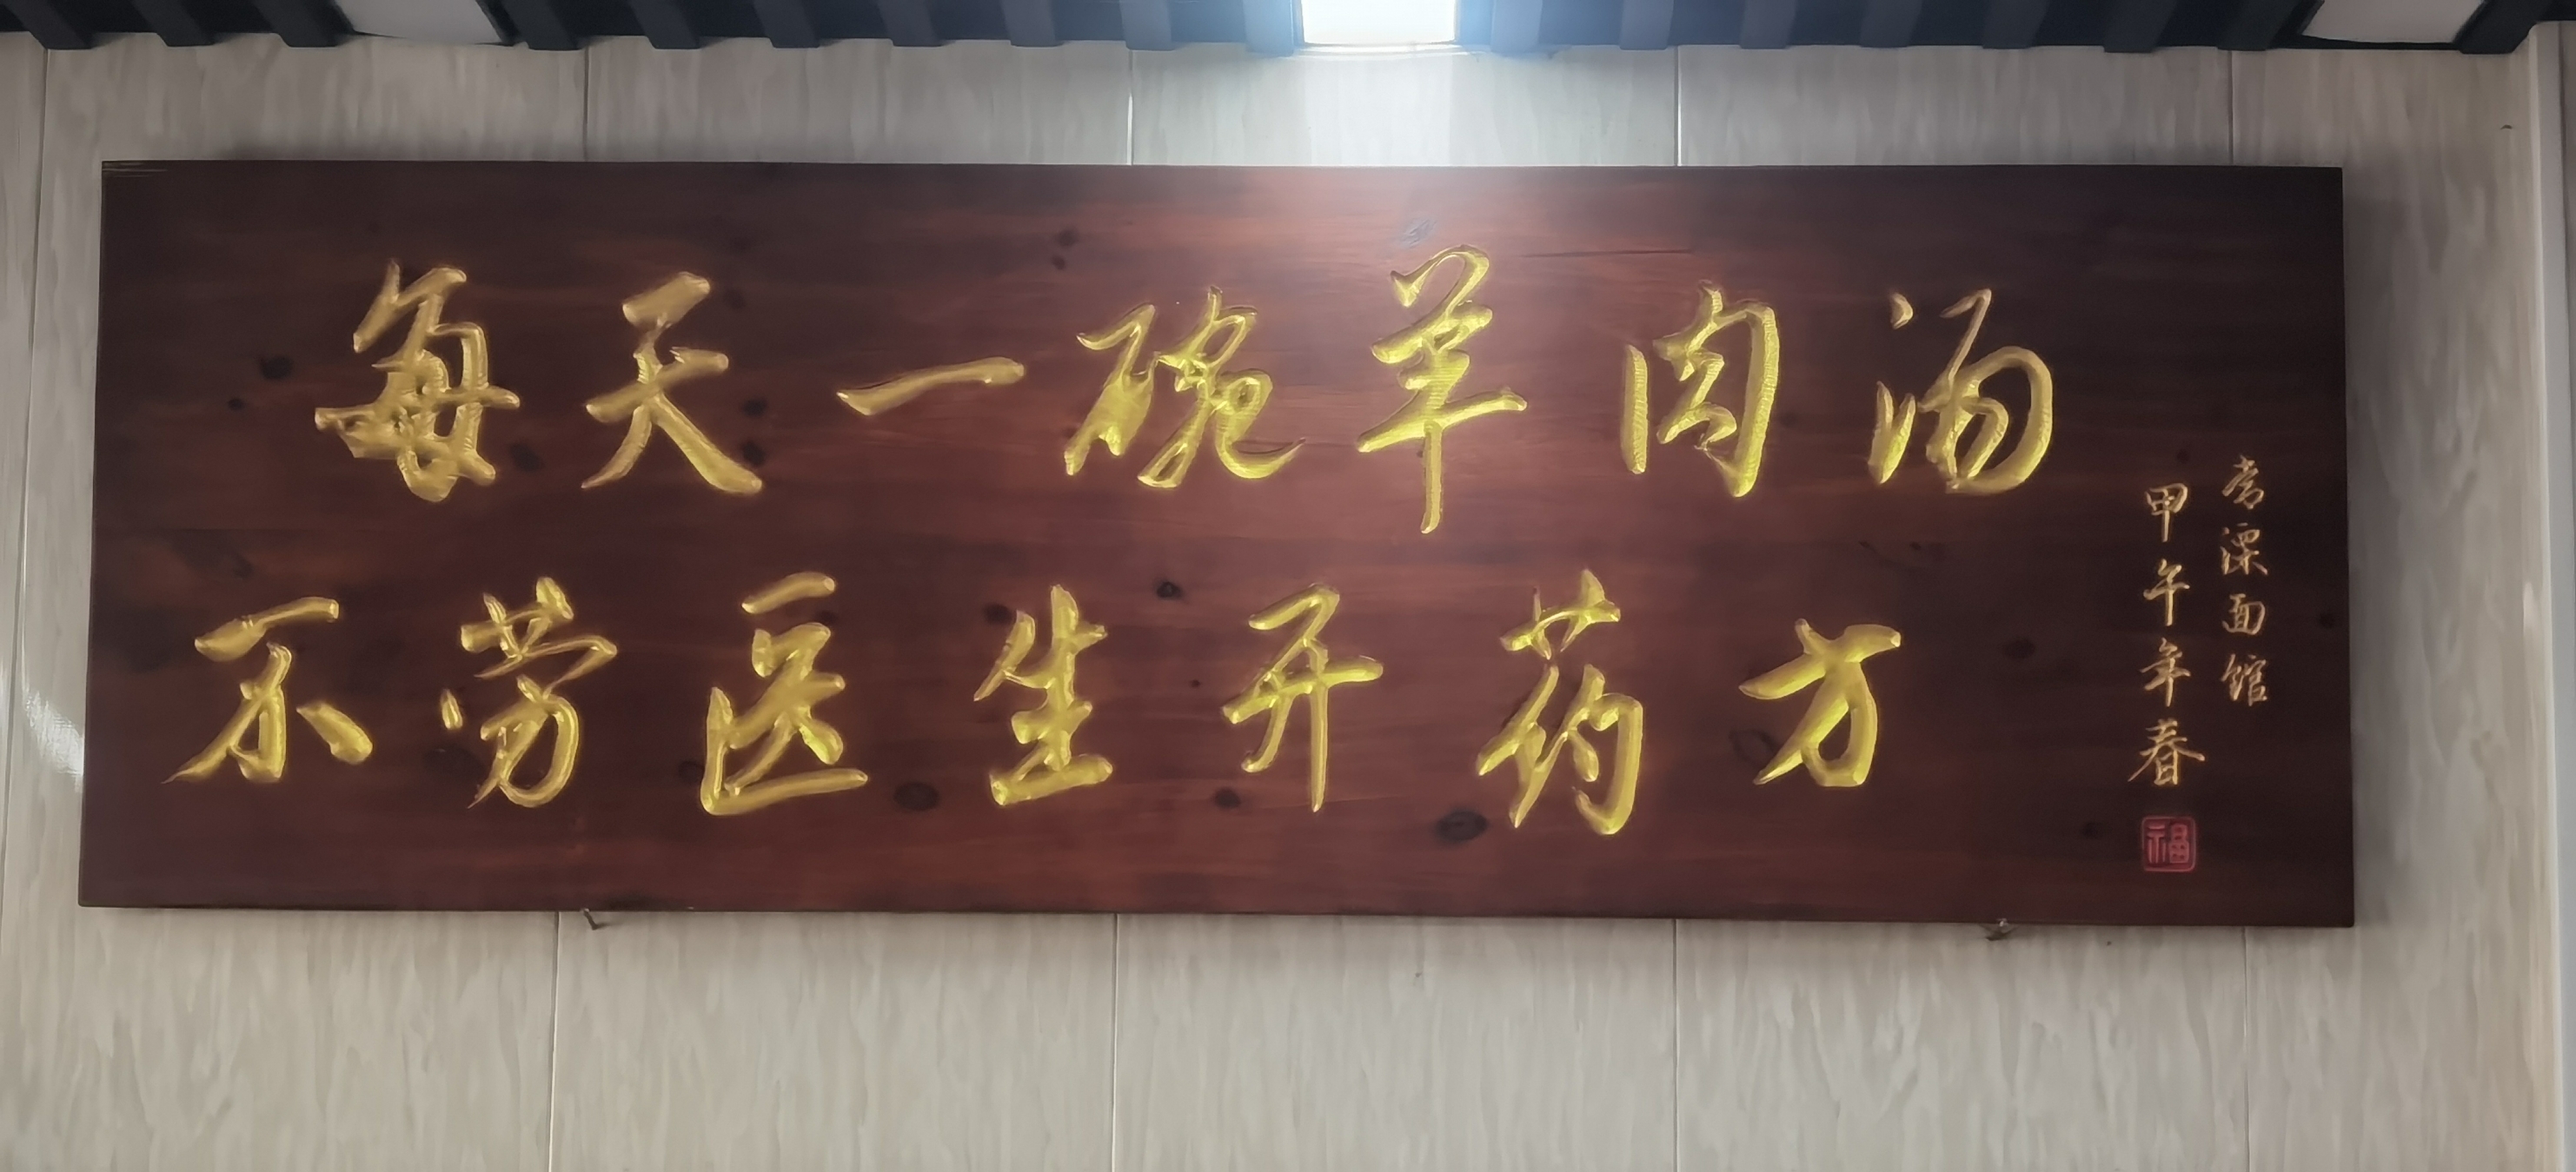 每天一碗羊肉汤
不劳医生开药方
常溧面馆
甲午年春
福